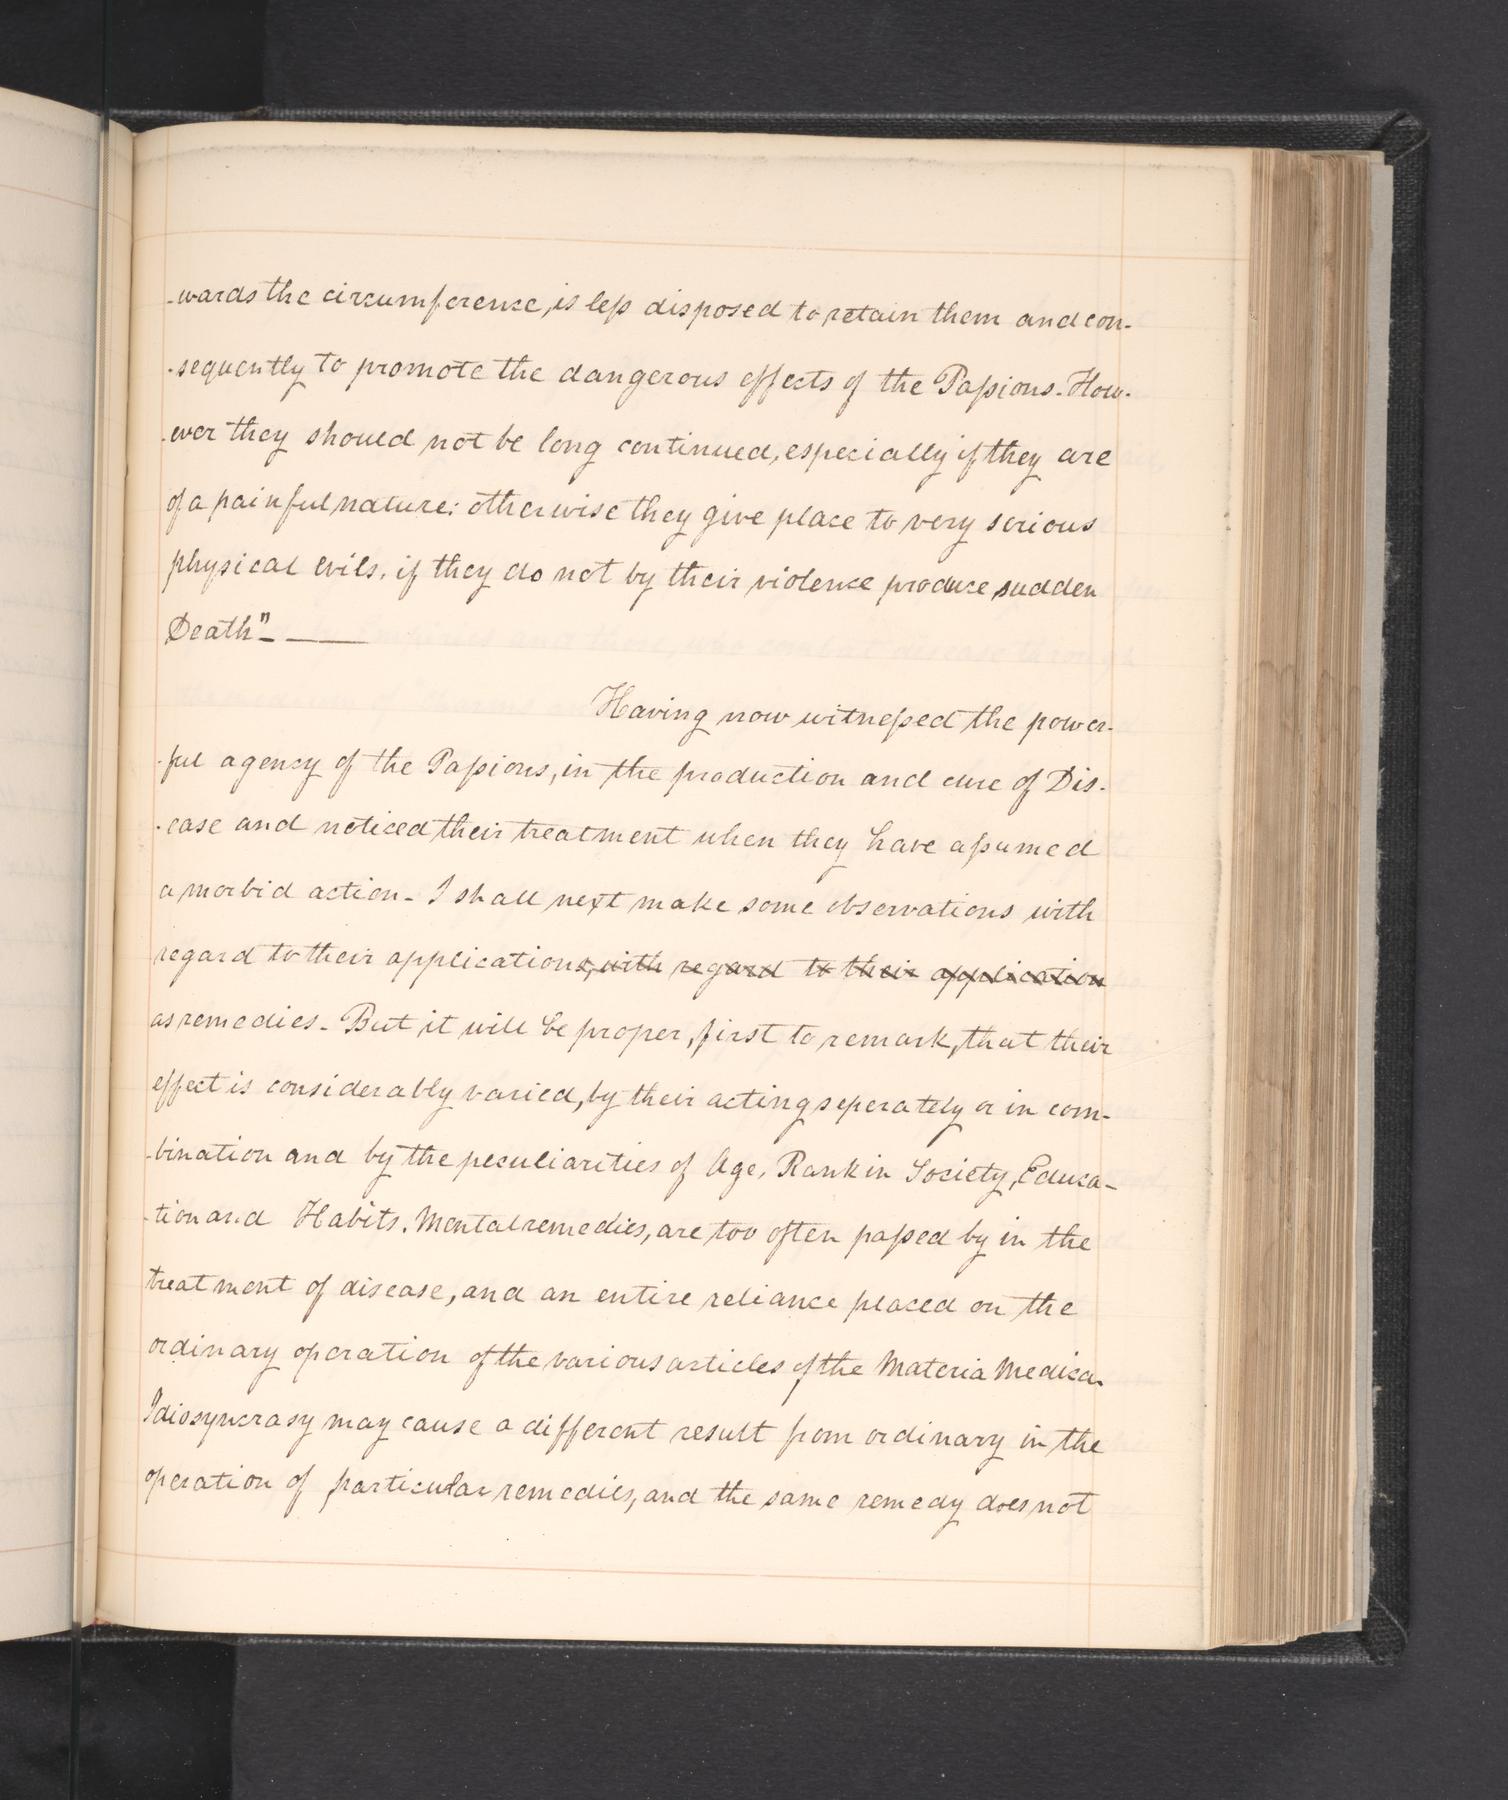 -wards the circumference, is less disposed to retain them and con-
-sequently to promote the dangerous effects of the Passions. How-
-ever they should not be long continued, especially if they are
of a painful nature: otherwise they give place to very serious
physical evils, if they do not by their violence produce sudden
Death"- ——
Having now witnessed the power-
-ful agency of the Passions, in the production and cure of Dis-
-ease and noticed their treatment when they have assumed
a morbid action - I shall next make some observations with
regard to their applications, with regard to their application
as remedies - But it will be proper, first to remark, that their
effect is considerably varied, by their acting seperately or in com-
-bination and by the peculiarities of Age, Rank in Society, Educa-
-tion and Habits. Mental remedies, are too often passed by in the
treatment of disease, and an entire reliance placed on the
ordinary operation of the various articles of the Materia Medica.
Idiosyncrasy may cause a different result from ordinary in the
operation of particular remedies, and the same remedy does not